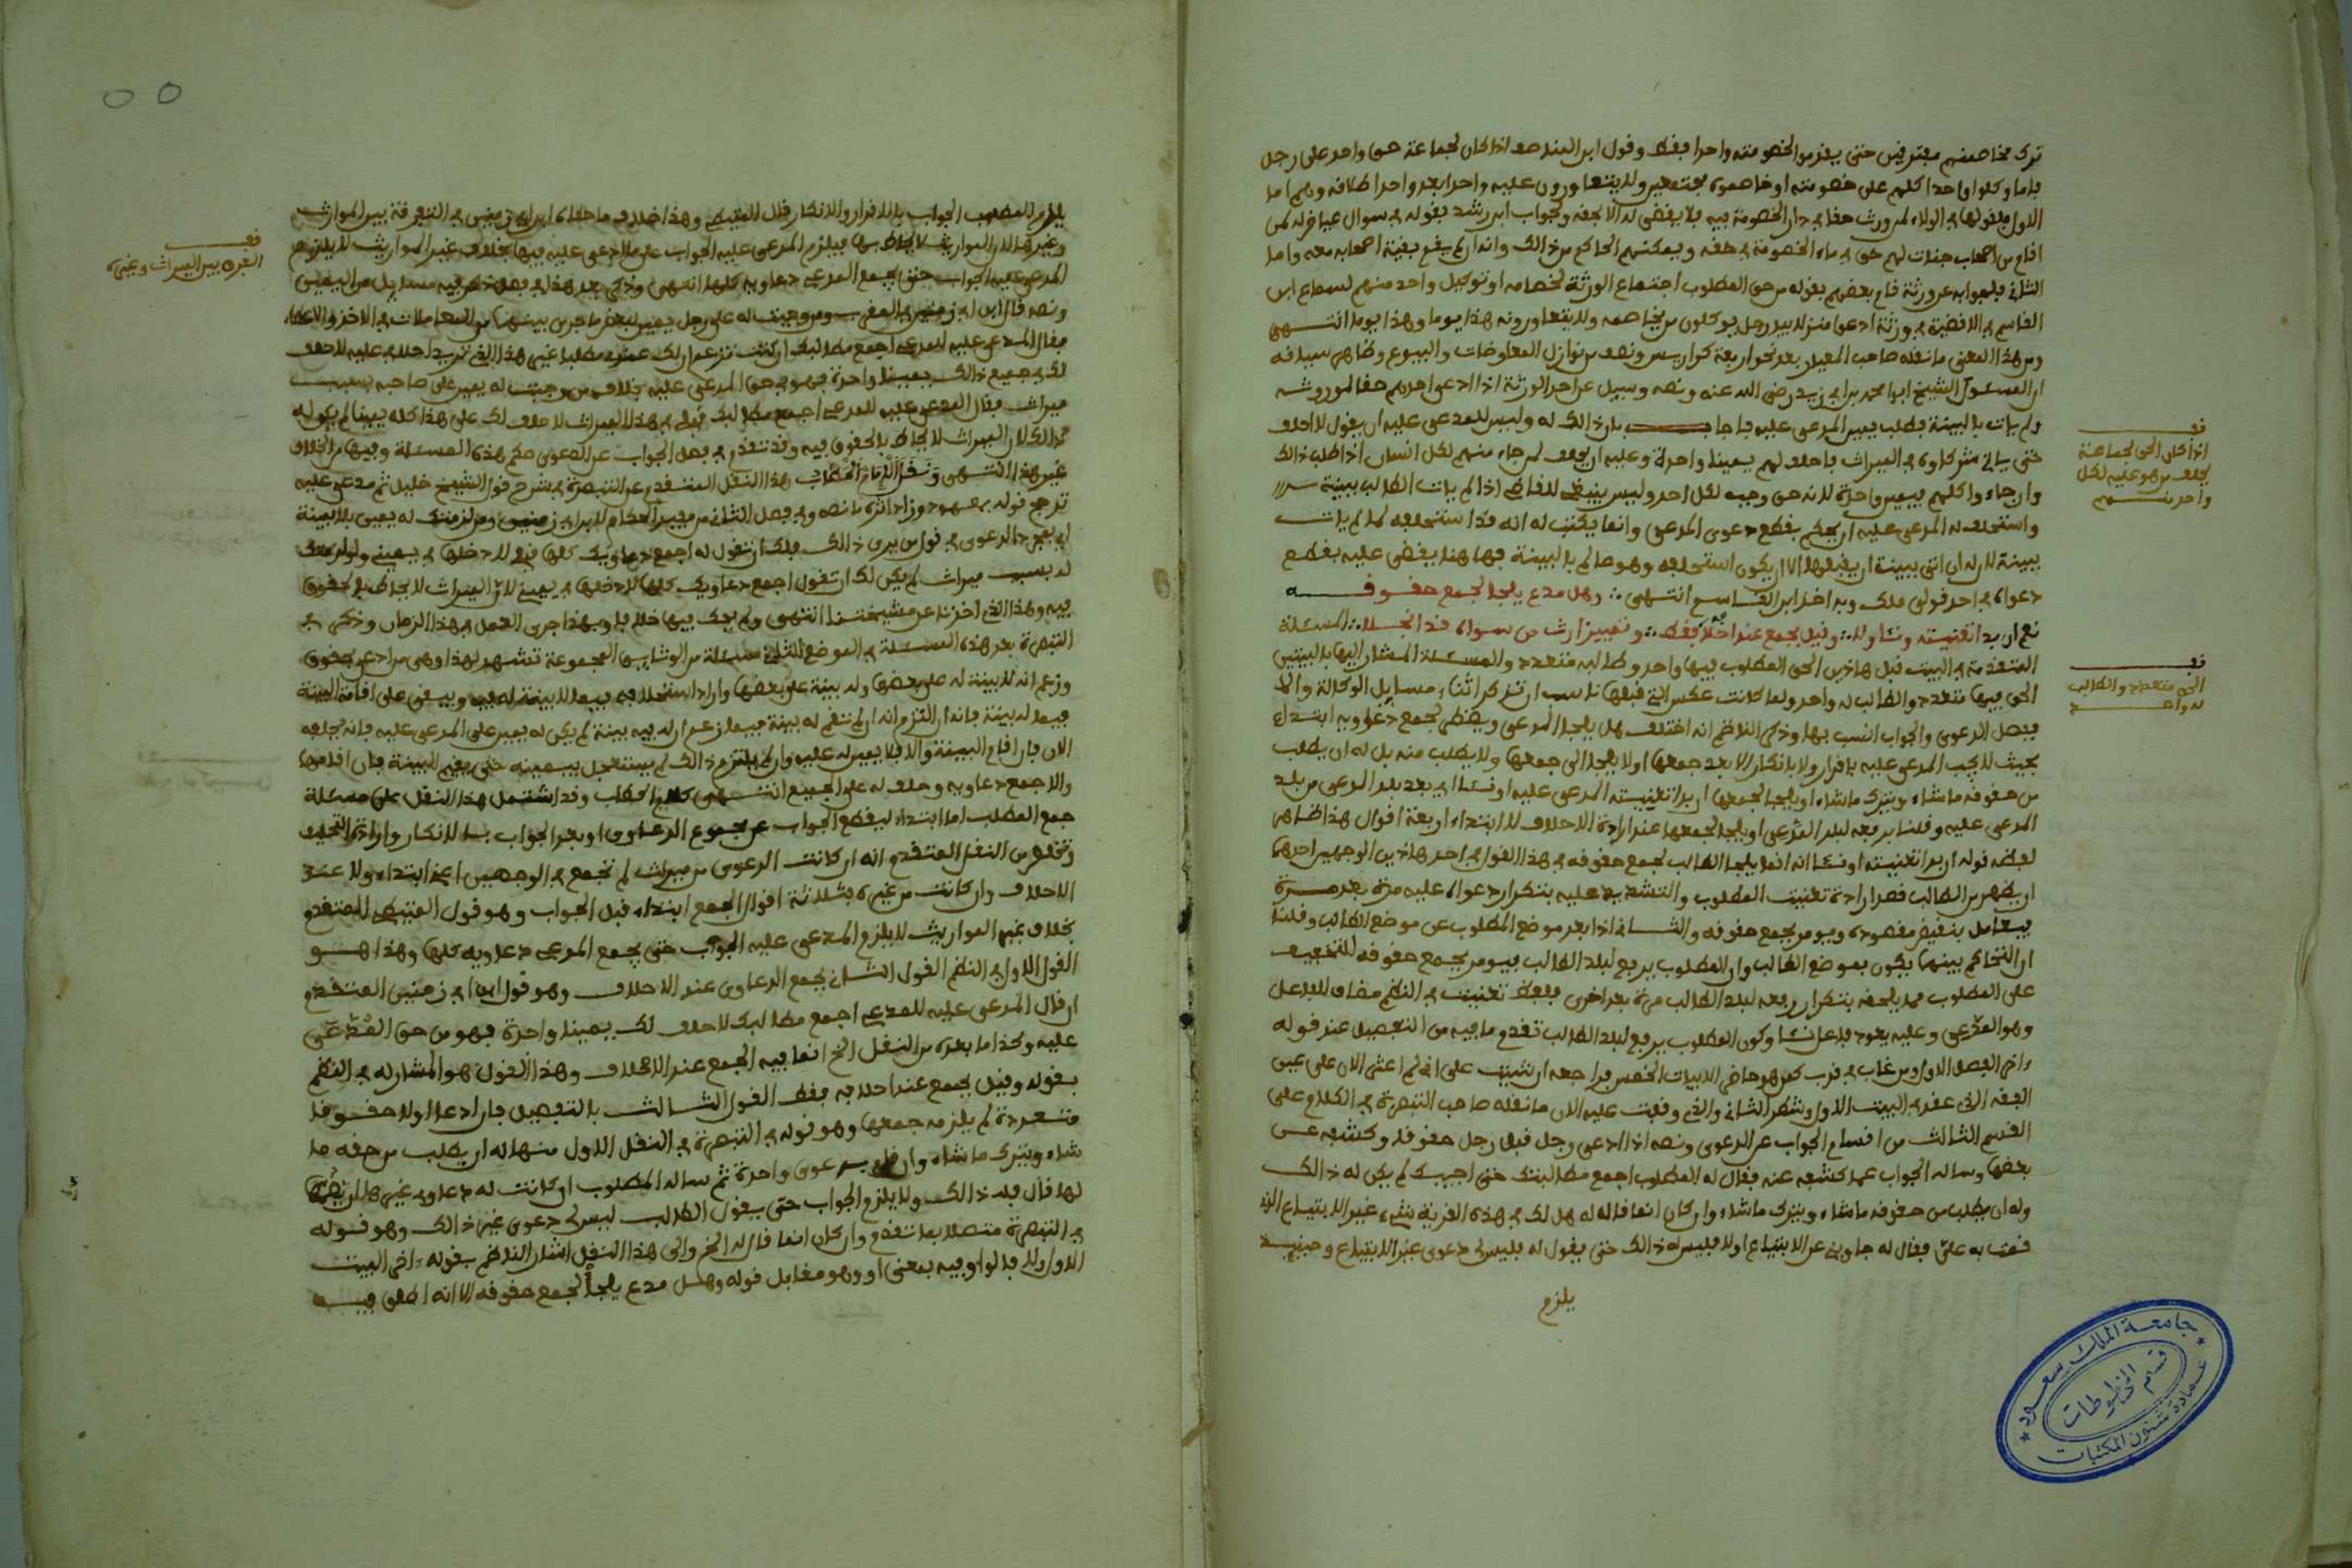 ترك مخاصمتهم مفترقين حتى يقدموا لخصومته واحدا فقط وقول ابن الهندي هو اذا كان لجماعة حق واحد على رجل
فاما وكلوا واحدا كلهم على خصومته او خاصموه مجتمعين ولا يتعاورون عليه واحدا بعد واحدا
الاول
افاع من اصحاب جنات لهم حق في ماء الخصومة في حقه ويمكنهم الحاكم من ذالك وان لم يقع بقية اصحابه معه واما
الثاني فلجوابه عن ورثة قام بعضهم بقوله من حق المطلوب اجتماع الورثة لخصامه او توكيل واحد منهم لسماع ابن
القاسم في الاقضية في ورثة ادعوا منزلا بيد رجل يوكلون من يخاصمه ولا يتعاورونه هذا يوما وهذا يوما انتهى
ومن هذا المعنى ما نقله صاحب المعيار بعد نحو اربعة كراريس ونصف من نوازل المعاوضات والبيوع وظاهر سياقه
ان المسئول الشيخ ابوا محمد بن ابي زيد رضي الله عنه ونصه وسيل عن احد الورثة اذا ادعى احدهم حقا لموروثه
ولم يات بالبينة فطلب يمين المدعى عليه فاجاب بان ذالك له وليس للمدعى عليه ان يقول لا احلف
حتى ياتي شركاوه في الميراث فاحلف لهم يمينا واحدة وعليه ان يحلف لمن جاء منهم لكل انسان اذا طلب ذالك
وان جاءوا كلهم فيمين واحدة لانه حق وجب لكل احد وليس ينبغي للقاضي اذا لم يات الطالب ببينة
واستحلف له المدعى عليه ان يحكم بقطع دعوى المدعي وانما يكتب له انه قد استحلفه لما لم يات
ببينة لان له ان اتى ببينة ان يقبلها الا ان يكون استحلفه وهو عالم بالبينة فهاهنا يقضى عليه بقطع
دعواه في احد قولي ملك وبه اخذ ابن القاسم انتهى ∴ وهل مدع يلجا لجمع حقوقه
نعم ان بدا تعنيته ونئا ولا ∴ وقيل بجمع عند احلافه فقط ∴ وتمييز ارث من سواه قد انجلا ∴ المسئلة
المتقدمة في البيت قبل هاذين الحق المطلوب فيها واحد وطالبه متعدد والمسئلة المشار اليها بالبيتين
الحق فيها متعدد والطالب له واحد ولما كانت عكس التي قبلها ناسب ان تذكر اثناء مسايل الوكالة والا
ففصل الدعوى والجواب انسب بها وذكر الناظم انه اختلف هل يلجا المدعي ويضطر لجمع دعاويه ابتداء
بحيث لا يجب المدعى عليه باقرار ولا بانكار الا بعد جمعها او لا يلجا الى جمعها ولا يطلب منه بل له ان يطلب
من حقوقه ما شاء ويترك ما شاء او يلجا لجمعها ان بدا تعنيته المدعى عليه او نئا اي بعد بلد المدعي من بلد
المدعى عليه وقلنا برفعه لبلد المدعي او يلجا لجمعها عند ارادة الاحلاف لا ابتداء اربعة اقوال هذا ظاهر
لفظه قوله ان بدا تعنيته او نئا انه انما يلجا الطالب لجمع حقوقه في هذا القول في احد هاذين الوجهين احدهما
ان يظهر من الطالب قصد ارادة تعنيت المطلوب والتشديد عليه بتكرار دعواه عليه مرة بعد مرة
فيعامل بنقيض مقصوده ويومر بجمع حقوقه والثاني اذا بعد موضع المطلوب عن موضع الطالب وقلنا
ان التحاكم بينهما يكون بموضع الطالب وان المطلوب يرفع لبلد الطالب فيومر بجمع حقوقه للتخفيف
على المطلوب مما يلحقه بتكرار رفعه لبلد الطالب مرة بعد اخرى فلفظ تعنيت في النظم مضاف للفاعل
وهو المدعي وعليه يعود فاعل نئا وكون المطلوب يرفع لبلد الطالب تقدم ما فيه من التفصيل عند قوله
ءاخر الفصل الاول ومن غاب في قرب كمن هو حاضر الابيات الخمس فراجعه ان شيت على اني لم اعثر الان على عين
الفقه الذي عقد في البيت الاول وشطر الثاني والذي وقفت عليه الان ما نقله صاحب التبصرة في الكلام على
القسم الثالث من اقسام الجواب عن الدعوى ونصه اذا ادعى رجل قبل رجل حقوقا وكشف عن
بعضها وساله الجواب عما كشف عنه فقال له المطلوب اجمع مطالبك حتى اجيبك لم يكن له ذالك
وله ان يطلب من حقوقه ما شاء ويترك ما شاء وان كان انما قال له هل لك في هذه القرية شيء غير الابتياع الذي
قمت به علي فقال له جاوبني عن الابتياع اولا فليس له ذالك حتى يقول له فليس لي دعوى غير الابتياع وحينيذ
يلزم
قف
اذا كان الحق لجماعة
يحلف من هو عليه لكل
واحد منهم
قف
الحق متعدد والطالب
له واحد
جامعة الملك سعود
قسم المخطوطات
عمادة شئون المكتبات
يلزم المطلوب الجواب بالاقرار والانكار قال المتيطي وهذا خلاف ما حكاه ابن ابي زمنين في التفرقة بين الموارث
وغيرها لان المواريث لا يحاط بها فيلزم المدعى عليه الجواب على ما ادعي عليه فيها بخلاف غير المواريث لا يلزم
المدعى عليه الجواب حتى يجمع المدعي دعاويه كلها انتهى وذكر بعد هذا في فصل ذكر فيه مسايل من اليمين
ونصه قال ابن ابي زمنين في المغرب ومن وجبت له على رجل يمين لبعض ما جرى بينهما من المعاملات في الاخذ والاعطاء
فقال المدعى عليه للمدعي اجمع مطالبك ان كنت تزعم ان لك عندي مطلبا غير هذا الذي تريد احلافي عليه لاحلف
لك في جميع ذالك يمينا واحدة فهو من حق المدعى عليه بخلاف من وجبت له يمين على صاحبه بسبب
ميراث فقال المدعى عليه للمدعي اجمع مطالبك قبلي في هذا الميراث لاحلف لك على هذا كله يمينا لم يكن له
ذالك لان الميراث لا يحاط بالحقوق فيه وقد تقدم في فصل الجواب عن الدعوى حكم هذه المسئلة وفيها من الخلاف
غير هذا انتهى ونقل الامام الحطاب هذا النقل المتقدم عن التبصرة في شرح قول الشيخ خليل ثم مدعى عليه
ترجح قوله بمعهود وزاد اثره ما نصه وفي فصل الثاني من مفيد الحكام لابن ابي زمنين ومن لزمتك له يمين بلا بينة
اي بمجرد الدعوى في قول من يرى ذالك فلك ان تقول له اجمع دعاويك كلها قبلي لادخلها في يميني
له بسبب ميراث لم يكن لك ان تقول اجمع دعاويك كلها لادخلها في يميني لان الميراث لا يحاط بالحقوق
فيه وهذا الذي اخذنا عن مشيختنا انتهى ولم يحك فيها خلافا وبهذا جرى العمل في هذا الزمان وذكر في
التبصرة بعد هذه المسئلة في الموضع الثاني مسئلة من الوثايق المجموعة تشهد لهذا وهي من ادعى بحقوق
وزعم انه لا بينة له على بعضها وله بينة على بعضها واراد استحلافه فيما لا بينة له فيه ويبقى على اقامة البينة
فيما له بينة فانه ان التزم انه ان لم تقم له بينة فيما زعم ان له فيه بينة لم يكن له يمين على المدعى عليه فانه يحلفه
الان فان اقام البينة والا فلا يمين له عليه وان لم يلتزم ذالك لم يستعجل بيمينه حتى يقيم البينة فان اقامها
والا جمع دعاويه وحلف له على الجميع انتهى كلام الحطاب وقد اشتمل هذا النقل على مسئلة
جمع المطالب اما ابتداء ليقطع الجواب عن مجموع الدعاوى او بعد الجواب بالانكار وارادة التحليف
وتحصل من النقل المتقدم انه ان كانت الدعوى من ميراث لم تجمع في الوجهين اعني ابتداء ولا عند
الاحلاف وان كانت من غيره فثلاثة اقوال الجمع ابتداء قبل الجواب وهو قول المتيطي المتقدم
بخلاف غير المواريث لا يلزم المدعى عليه الجواب حتى يجمع المدعي دعاويه كلها وهذا هو
القول الاول في النظم القول الثاني بجمع الدعاوى عند الاحلاف وهو قول ابن ابي زمنين المتقدم
ان قال المدعى عليه للمدعي اجمع مطالبك لاحلف لك يمينا واحدة فهو من حق المدعى
عليه وكذا ما بعده من النقل الخ انما فيه الجمع عند الاحلاف وهذا القول هو المشار له في النظم
بقوله وقيل بجمع عند احلافه فقط القول الثالث بالتفصيل فان ادعى اولا حقوقا
متعددة لم يلزمه جمعها وهو قوله في التبصرة في النقل الاول منها له ان يطلب من حقه ما
شاء ويترك ما شاء وان قام بدعوى واحدة ثم ساله المطلوب ان كانت له دعاوى غيرها ان يضمها
لها قال فله ذالك ولا يلزم الجواب حتى يقول الطالب ليس لي دعوى غير ذالك وهو قوله
في التبصرة متصلا بما تقدم وان كان انما قال له الخ والى هذا النقل اشار الناظم بقوله ءاخر البيت
الاول ولا فالواو فيه بمعنى او وهو مقابل قوله وهل مدع يلجا لجمع حقوقه الا انه اطلق فيه
قف
الفرق بين الميراث وغيره